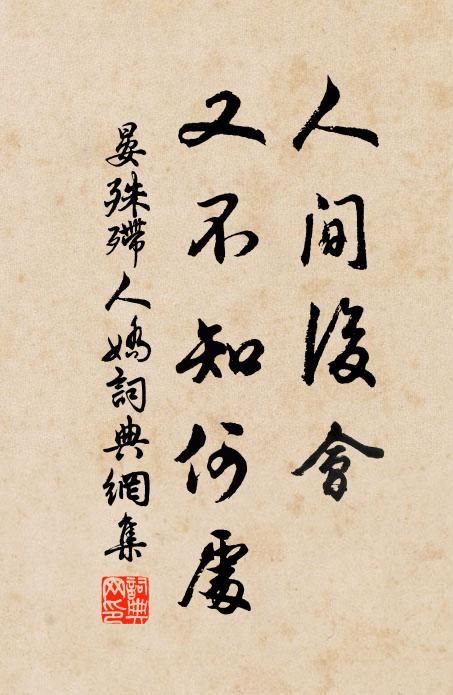 人間後會
又不知何處
晏殊殢人嬌詞典網集
詞典網印